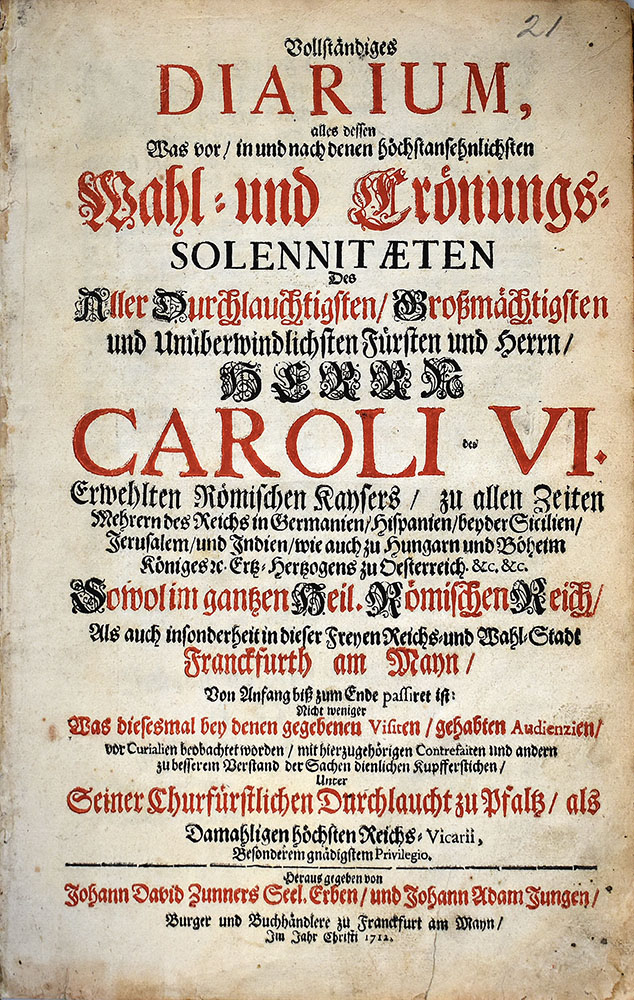 21
Vollständiges
DIARIUM,
alles dessen
Was vor / in und nach denen höchstansehnlichsten
Wahl- und Crönungs-
SOLENNITÆTEN
Des
Aller Durchlauchtigsten / Großmächtigsten
und Unüberwindlichsten Fürsten und Herrn /
HERRN
CAROLI des VI.
Erwehlten Römischen Kaysers / zu allen Zeiten
Mehrern des Reichs in Germanien / Hispanien / beyder Sicilien /
Jerusalem / und Indien / wie auch zu Hungarn und Böheim
Königes ꝛc. Ertz-Hertzogens zu Oesterreich. &c. &c.
Sowol im gantzen Heil. Römischen Reich /
Als auch insonderheit in dieser Freyen Reichs- und Wahl-Stadt
Franckfurth am Mayn /
Von Anfang biß zum Ende passiret ist:
Nicht weniger
Was diesesmal bey denen gegebenen Visiten / gehabten Audienzien /
vor Curialien beobachtet worden / mit hierzugehörigen Contrefaiten und andern
zu besserem Verstand der Sachen dienlichen Kupfferstichen /
Unter
Seiner Churfürstlichen Durchlaucht zu Pfaltz / als
Damahligen höchsten Reichs-Vicarii,
Besonderem gnädigstem Privilegio.
Heraus gegeben von
Johann David Zunners Seel. Erben / und Johann Adam Jungen /
Burger und Buchhändlere zu Franckfurt am Mayn /
Im Jahr Christi 1712.